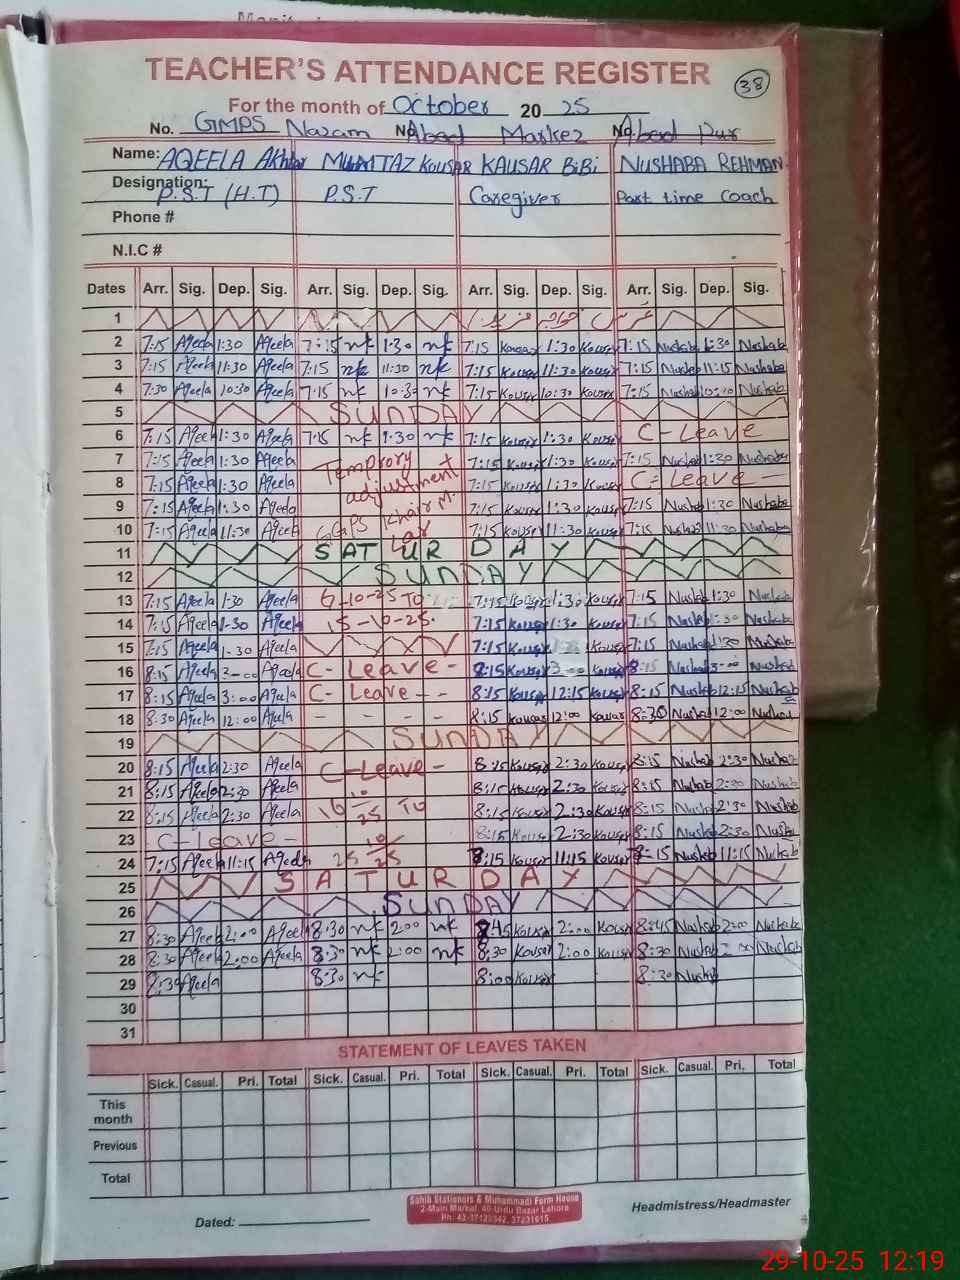 TEACHER'S ATTENDANCE REGISTER
38
For the month of October 20 25
No. GMPS Nazam No. Abad Markez No. Abad Pur
Name: AQEELA Akhtar MUMTAZ KOUSAR KAUSAR BiBi NUSHABA REHMAN
Designation: P.S.T (H.T) P.S.T Caregiver Part time Coach
Phone #
N.I.C #
Dates Arr. Sig. Dep. Sig. Arr. Sig. Dep. Sig. Arr. Sig. Dep. Sig. Arr. Sig. Dep. Sig.
1 عرس خواجہ فرید
2 7:15 Aqeela 1:30 Aqeela 7:15 mk 1:30 mk 7:15 Kousar 1:30 Kousar 7:15 Nushab 1:30 Nushaba
3 7:15 Aqeela 11:30 Aqeela 7:15 mk 11:30 mk 7:15 Kousar 11:30 Kousar 7:15 Nushab 11:15 Nushaba
4 7:30 Aqeela 10:30 Aqeela 7:15 mk 10:30 mk 7:15 Kousar 10:30 Kousar 7:15 Nushab Nushaba
5 SUNDAY
6 7:15 Aqeela 1:30 Aqeela 7:15 mk 1:30 mk 7:15 Kousar 1:30 Kousar C-Leave
7 7:15 Aqeela 1:30 Aqeela Temprory 7:15 Kousar 1:30 Kousar 7:15 Nushab 1:30 Nushaba
8 7:15 Aqeela 1:30 Aqeela adjustment 7:15 Kousar 1:30 Kousar C-Leave -
9 7:15 Aqeela 1:30 Aqeela GGPS Khair M. 7:15 Kousar 1:30 Kousar 7:15 Nushab 1:30 Nushaba
10 7:15 Aqeela 11:30 Aqeela Lar 7:15 Kousar 11:30 Kousar 7:15 Nushab 11:30 Nushaba
11 SATURDAY
12 SUNDAY
13 7:15 Aqeela 1:30 Aqeela 6-10-25 To 7:15 Kousar 1:30 Kousar 7:15 Nushab 1:30 Nushab
14 7:15 Aqeela 1:30 Aqeela 15-10-25. 7:15 Kousar 1:30 Kousar 7:15 Nushab 1:30 Nushaba
15 7:15 Aqeela 1:30 Aqeela 7:15 Kousar Kousar 7:15 Nushab 1:30 Nushaba
16 8:15 Aqeela 3:00 Aqeela C-Leave- 8:15 Kousar 3:00 Kousar 8:15 Nushab 3:00 Nushab
17 8:15 Aqeela 3:00 Aqeela C-Leave-- 8:15 Kousar 12:15 Kousar 8:15 Nushab 12:15 Nushab
18 8:30 Aqeela 12:00 Aqeela - - - - 8:15 Kousar 12:00 Kousar 8:30 Nushab 12:00 Nushab
19 SUNDAY
20 8:15 Aqeela 2:30 Aqeela C-Leave- 8:15 Kousar 2:30 Kousar 8:15 Nushab 2:30 Nushab
21 8:15 Aqeela 2:30 Aqeela 8:15 Kousar 2:30 Kousar 8:15 Nushab 2:30 Nushab
22 8:15 Aqeela 2:30 Aqeela 16 10/25 To 8:15 Kousar 2:30 Kousar 8:15 Nushab 2:30 Nushab
23 C-Leave- 8:15 Kousar 2:30 Kousar 8:15 Nushab 2:30 Nushab
24 7:15 Aqeela 11:15 Aqeela 25 10/25 8:15 Kousar 11:15 Kousar 8:15 Nushab 11:15 Nushab
25 SATURDAY
26 SUNDAY
27 8:30 Aqeela 2:00 Aqeela 8:30 mk 2:00 mk 8:45 Kousar 2:00 Kousar 8:45 Nushab 2:00 Nushaba
28 8:30 Aqeela 2:00 Aqeela 8:30 mk 2:00 mk 8:30 Kousar 2:00 Kousar 8:30 Nushab 2:00 Nushab
29 8:30 Aqeela 8:30 mk 8:00 Kousar 8:30 Nushab
30
31
STATEMENT OF LEAVES TAKEN
Sick. Casual. Pri. Total Sick. Casual. Pri. Total Sick. Casual. Pri. Total Sick. Casual. Pri. Total
This month
Previous
Total
Sahib Stationers & Muhammadi Form House
2-Main Market, 40-Urdu Bazar Lahore
Ph: 42-37123342, 37231615
Headmistress/Headmaster
Dated:
29-10-25 12:19